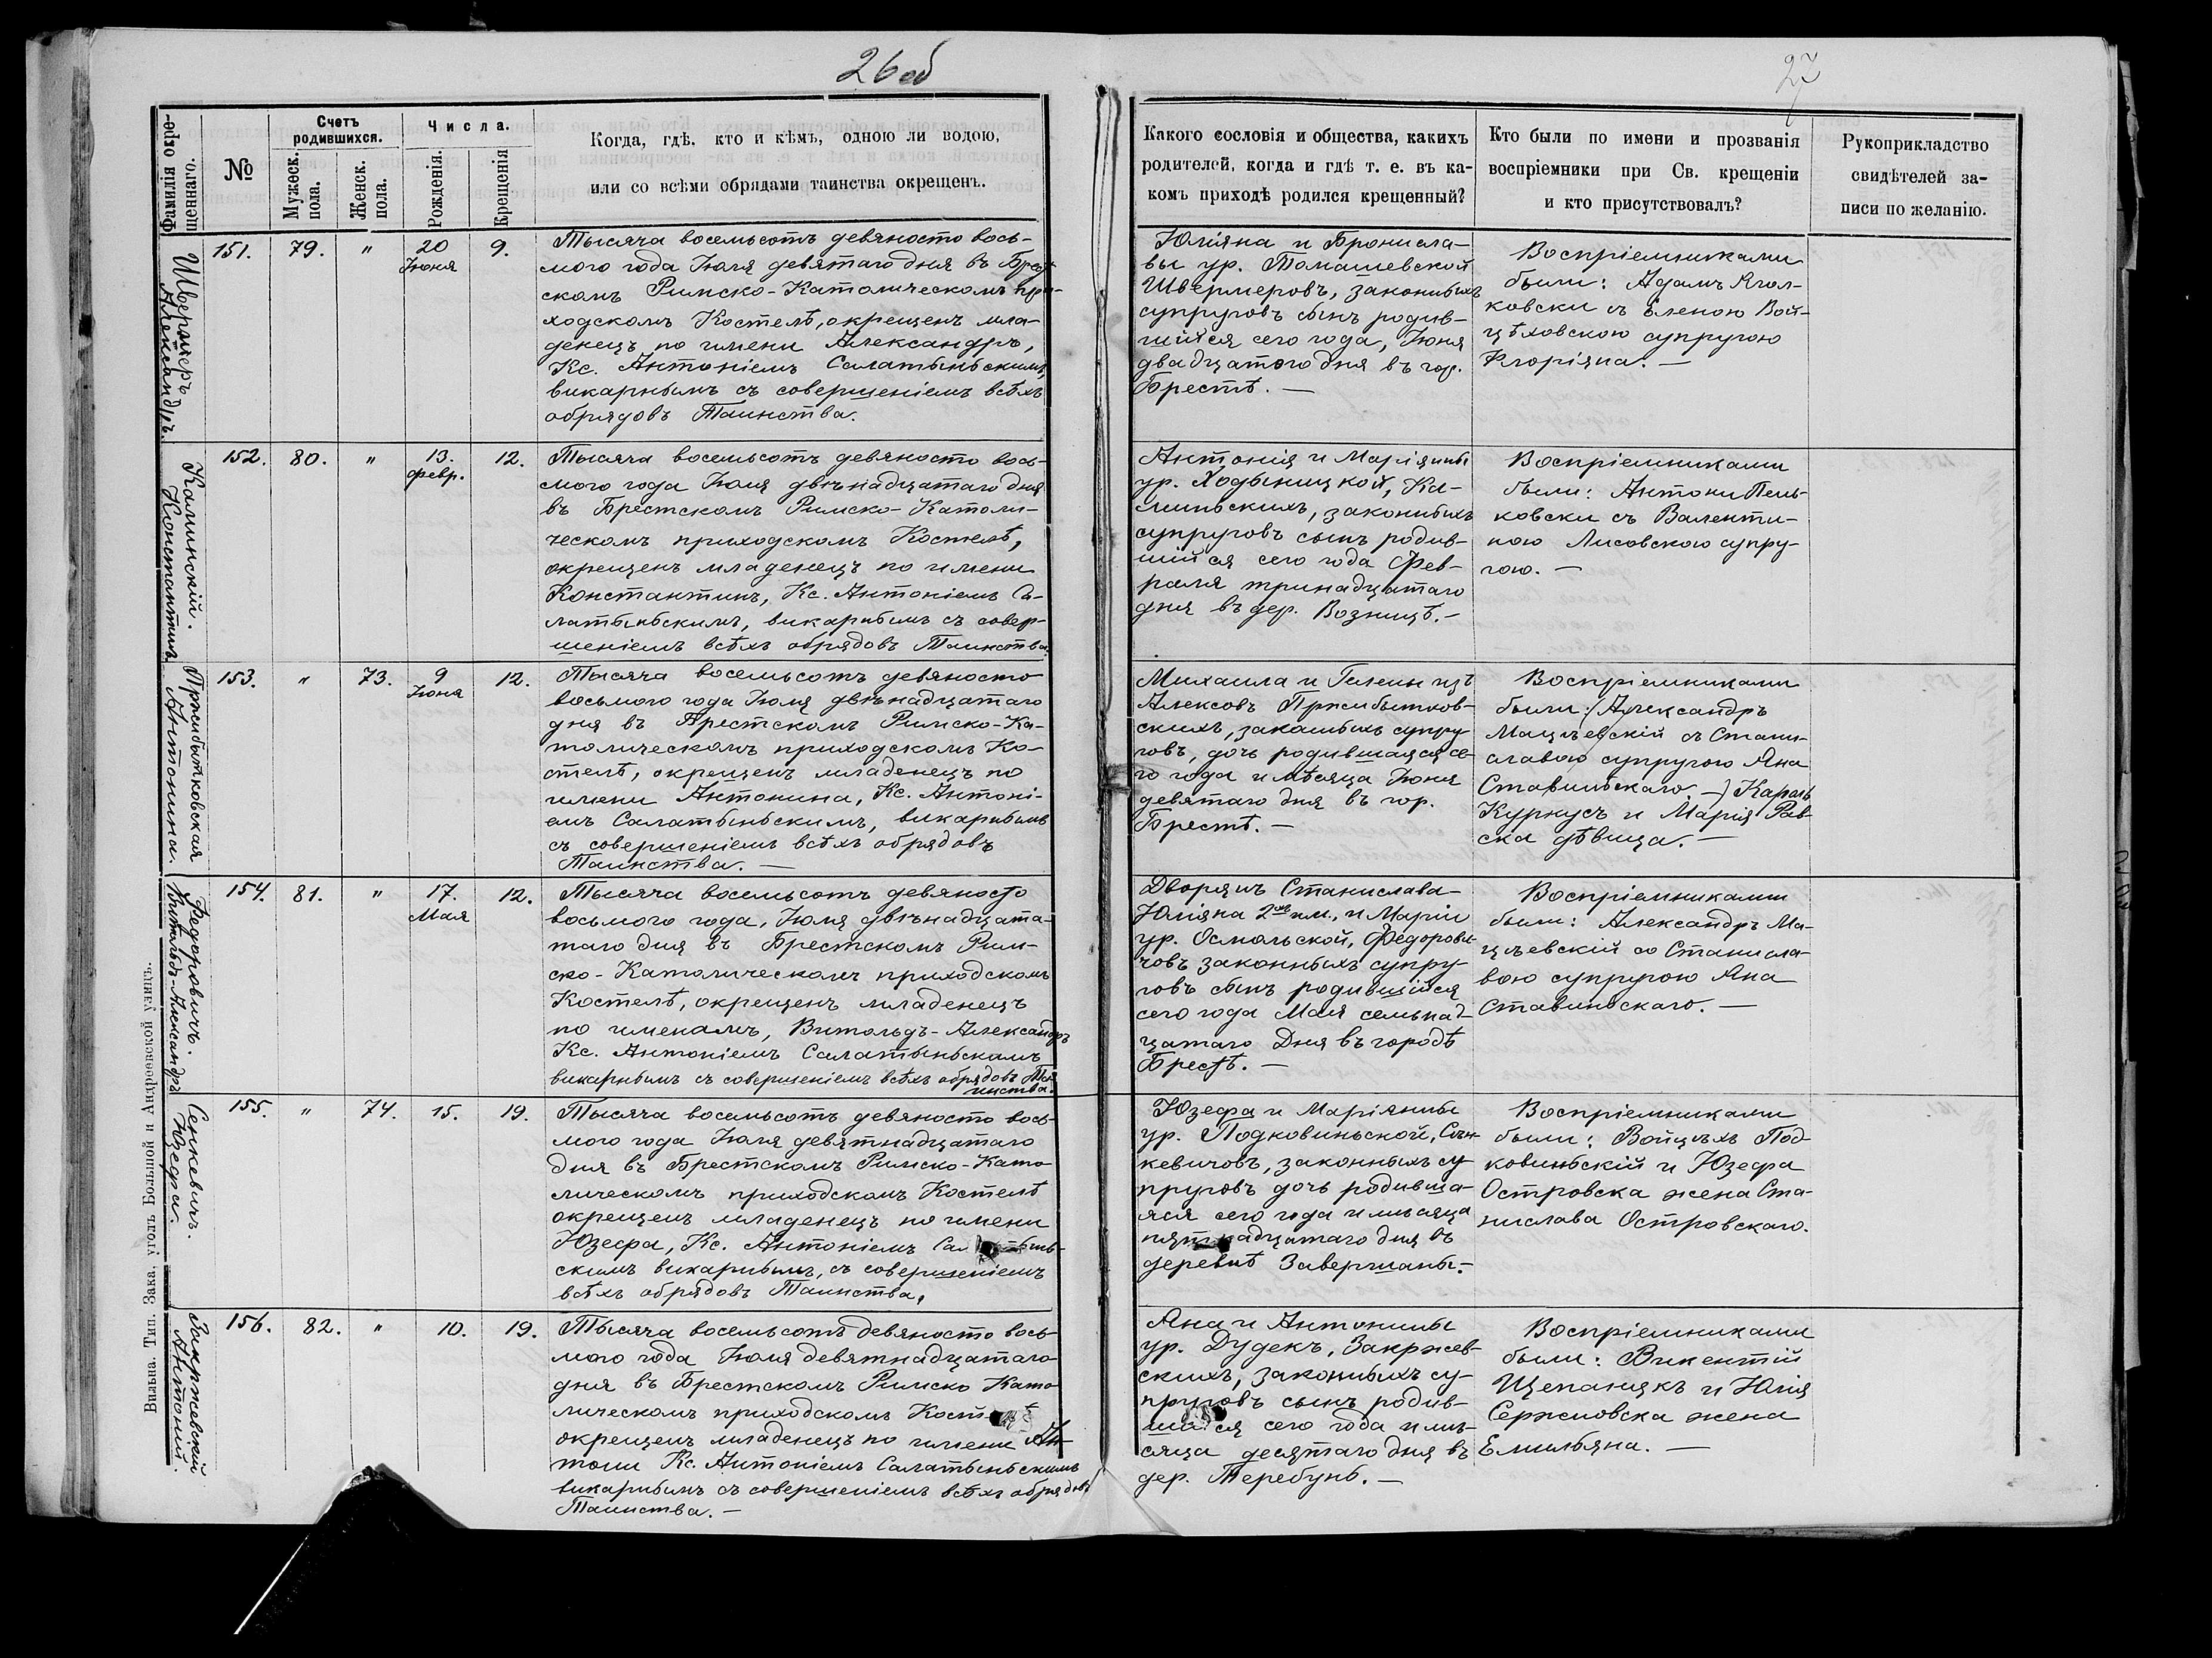 26 об
27
Фамилія окрещеннаго.
№
Счетъ родившихся.
Мужеск. пола.
Женск. пола.
Числа.
Рожденія.
Крещенія
Когда, гдѣ, кто и кѣмъ, одною ли водою,
или со всѣми обрядами таинства окрещенъ.
Какого сословія и общества, какихъ
родителей, когда и гдѣ т. е. въ ка-
комъ приходѣ родился крещенный?
Кто были по имени и прозванія
воспріемники при Св. крещеніи
и кто присутствовалъ?
Рукоприкладство
свидѣтелей за-
писи по желанію.
Швермеръ
Александръ.
151. 79. " 20 Іюня 9.
Тысяча восемьсотъ девяносто вось-
мого года Іюля девятаго дня въ Брест
скомъ Римско-Католическомъ при-
ходскомъ Костелѣ, окрещенъ мла-
денецъ по имени Александръ,
Кс. Антоніемъ Салатыньскимъ,
викарнымъ съ совершеніемъ всѣхъ
обрядовъ Таинства.
Юліяна и Бронисла-
вы ур. Томашевской
Швермеровъ, законныхъ
супруговъ сынъ родив-
шійся сего года, Іюня
двадцатого дня въ гор.
Брестѣ. —
Воспріемниками
были: Адамъ Ягол-
ковски съ Еленою Вой-
цѣховскою супругою
Флоріяна. —
Калинскій.
Константинъ
152. 80. " 13. февр. 12.
Тысяча восемьсотъ девяносто вось-
мого года Іюля двѣнадцатаго дня
въ Брестскомъ Римско-Католи-
ческомъ приходскомъ Костелѣ,
окрещенъ младенецъ по имени
Константинъ, Кс. Антоніемъ Са-
латыньскимъ, викарнымъ съ совер-
шеніемъ всѣхъ обрядовъ Таинства.
Антонія и Маріянны
ур. Ходыницкой, Ка-
линьскихъ, законныхъ
супруговъ сынъ родив-
шійся сего года Фев-
раля тринадцатаго
дня въ дер. Возницѣ. —
Воспріемниками
были: Антони Пень-
ковски съ Валенти-
ною Лисовскою супру-
гою. —
Пржибытковская
Антонина.
153. " 73. 9 Іюня 12.
Тысяча восемьсотъ девяносто
восьмого года Іюля двѣнадцатаго
дня въ Брестскомъ Римско-Ка-
толическомъ приходскомъ Ко-
стелѣ, окрещенъ младенецъ по
имени Антонина, Кс. Антоні-
емъ Салатыньскимъ, викарнымъ
съ совершеніемъ всѣхъ обрядовъ
Таинства. —
Михаила и Гелены изъ
Алексовъ Пржибытков-
скихъ, законныхъ супру-
говъ, дочь родившаяся се-
го года и мѣсяца Іюня
девятаго дня въ гор.
Брестѣ. —
Воспріемниками
были: (Александръ
Мацѣевскій съ Стани-
славою супругою Яна
Ставиньскаго —) Кароль
Курнусъ и Марія Рав-
ска дѣвица. —
Федоровичъ.
Витольдъ-Александръ
154. 81. " 17. Мая 12.
Тысяча восемьсотъ девяносто
восьмого года, Іюля двѣнадцата-
таго дня въ Брестскомъ Рим-
ско-Католическомъ приходскомъ
Костелѣ, окрещенъ младенецъ
по именамъ, Витольдъ-Александръ
Кс. Антоніемъ Салатыньскамъ
викарнымъ съ совершеніемъ всѣхъ обрядовъ Таи-
нства.
Дворянъ Станислава-
Юліяна 2хъ им. и Маріи
ур. Осмольской, Федорови-
човъ законныхъ супру-
говъ сынъ родившійся
сего года Мая семьнад-
цатаго Дня въ городѣ
Брестѣ. —
Воспріемниками
были: Александръ Ма-
цѣевскій со Станисла-
вою супругою Яна
Ставиньскаго. —
Сенкевичъ.
Юзефа.
155. " 74. 15. 19.
Тысяча восемьсотъ девяносто вось-
мого года Іюля девятнадцатаго
дня въ Брестскомъ Римско-Като-
лическомъ приходскомъ Костелѣ
окрещенъ младенецъ по имени
Юзефа, Кс. Антоніемъ Салатынь-
скимъ викарнымъ, съ совершеніемъ
всѣхъ обрядовъ Таинства.
Юзефа и Маріянны
ур. Подковиньской, Сѣн-
кевичовъ, законныхъ су-
пруговъ дочь родивша-
яся сего года и мѣсяца
пятнадцатаго дня въ
деревнѣ Завершаны. —
Воспріемниками
были: Войцѣхъ Под-
ковиньскій и Юзефа
Островска жена Ста-
нислава Островскаго.
Закржевскій
Антоній.
156. 82. " 10. 19.
Тысяча восемьсотъ девяносто вось-
мого года Іюля девятнадцатаго
дня въ Брестскомъ Римско Като-
лическомъ приходскомъ Костелѣ
окрещенъ младенецъ по имени Ан-
тони Кс. Антоніемъ Салатыньскимъ
викарнымъ съ совершеніемъ всѣхъ обрядовъ
Таинства. —
Яна и Антонины
ур. Дудекъ, Закржев-
скихъ, законныхъ су-
пруговъ сынъ родив-
шійся сего года и мѣ-
сяца десятаго дня въ
дер. Теребунь. —
Воспріемниками
были: Викентій
Щепанякъ и Юлія
Сержповска жена
Емильяна. —
Вильна. Тип. Зака, уголъ Большой и Андреевской улицъ.